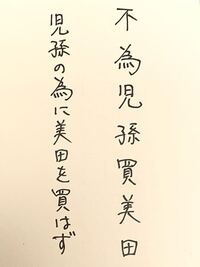 不為児孫買美田
児孫の為に美田を買はず